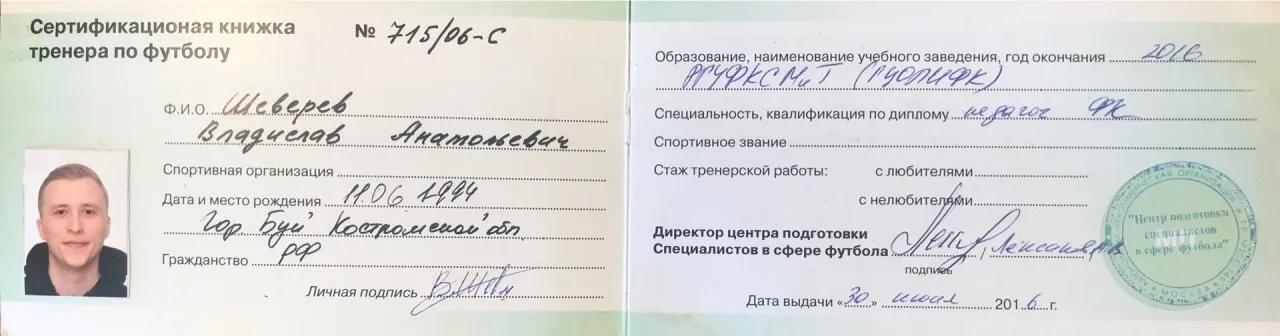 Сертификационая книжка
тренера по футболу
№ 715/06-С
Ф.И.О. Шеверев
Владислав Анатольевич
Спортивная организация
Дата и место рождения 11.06 1994
Гор. Буй Костромской обл
Гражданство РФ
Личная подпись
Образование, наименование учебного заведения, год окончания 2016
РГУФКСМиТ (ГЦОЛИФК)
Специальность, квалификация по диплому педагог ФК
Спортивное звание
Стаж тренерской работы: с любителями
с нелюбителями
Директор центра подготовки
Специалистов в сфере футбола
подпись
Дата выдачи «30» июня 2016 г.
"Центр подготовки
специалистов
в сфере футбола"
МОСКВА